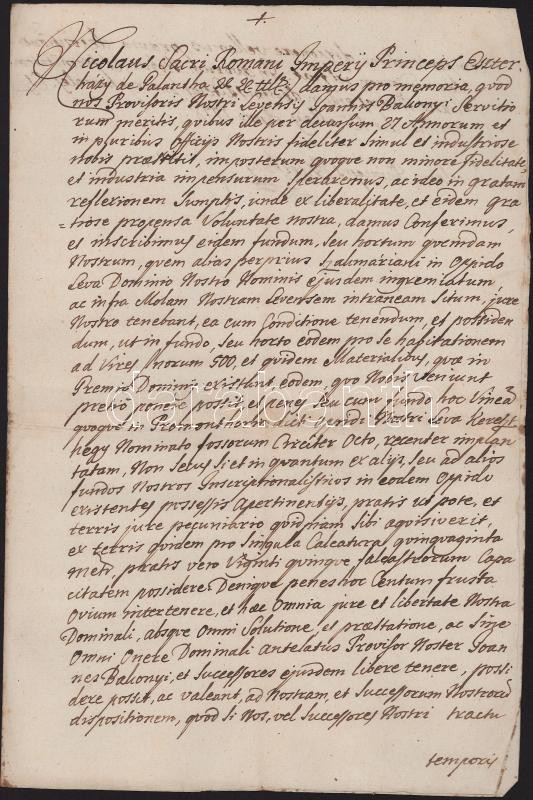 Nicolaus Sacri Romani Imperÿ Princeps Eszter
hazy de Galantha damus pro memoria, quod
nos Provisoris Nostri Levensis Joannis Bakonyi Servitio
rum meritis, quibus ille per decursum 27 Annorum et
in pluribus Officÿs Nostris fideliter simul et industriose
nobis præstitis, imposterum quoque non minore fidelitate,
et industria impensurum speraremus, ac ideo in gratam
reflexionem Sumptis, unde ex liberalitate, et eidem gra
=tiose propensa Voluntate nostra, damus Conferimus,
et inscribimus eidem fundum, seu hortum quendam
Nostrum, quem alias perprius in Oppido
Leva Dominio Nostro Nominis ejusdem ingremiatum,
ac infra Molam Nostram Levensem intraneam Situm, jure
Nostro tenebant, ea cum Conditione tenendum, et possiden
dum, ut in fundo, seu horto eodem pro se habitationem
ad Vires 500, et quidem Materialibus, quæ in
Gremio Dominii existant, eodem, quo Nobis veniunt
pretio ponere possit, et penes seu cum fundo hoc Vinea
quoque in Promonthorio Nostri Leva Kereszt
hegy Nominato fossorum Circiter Octo, recenter implan
tatam, Non Secus si et in quantum ex alÿs, seu ad alios
fundos Nostros Inscriptionalisticos in eodem Oppido
existentes possessis Apertinentÿs, pratis ut pote, et
terris jure pecuniario quidpiam Sibi aquisiverit,
ex terris quidem pro Singula Calcatura quinquaginta
pratis vero Viginti quinque falcastrorum Capa
citatem possidere. Denique penes hoc Centum frusta
Ovium intertenere, et hæc Omnia jure et libertate Nostra
Dominali, absque Omni Solutione, et præstatione, ac Sine
Omni Onere Dominali antelatus Provisor Noster Joan
nes Bakonyi, et Successores ejusdem libere tenere, possi
dere possit, ac valeant, ad Nostram, et Successorum Nostrorũ
dispositionem, quod si Nos, vel Successores Nostri tractu
temporis
darabanth